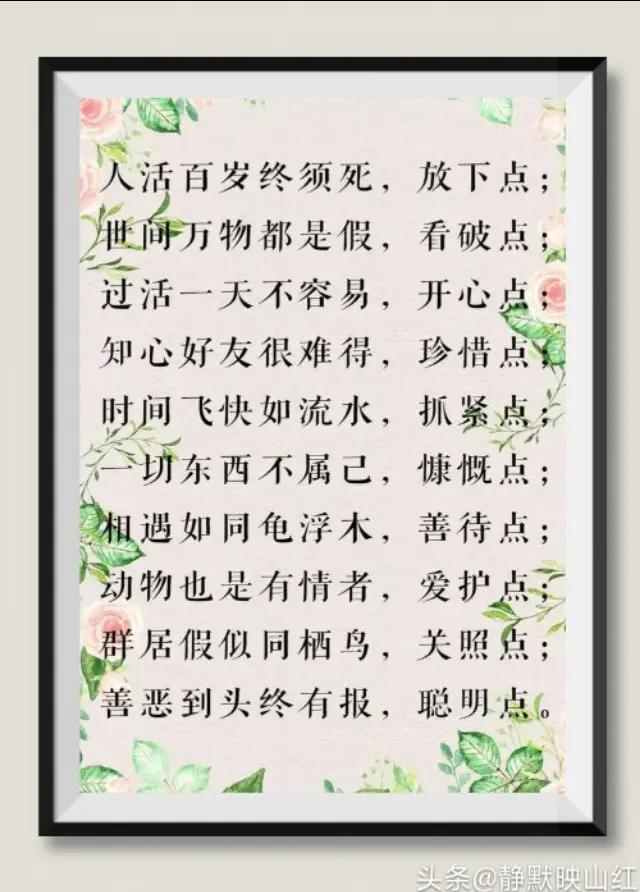 人活百岁终须死，放下点；
世间万物都是假，看破点；
过活一天不容易，开心点；
知心好友很难得，珍惜点；
时间飞快如流水，抓紧点；
一切东西不属己，慷慨点；
相遇如同龟浮木，善待点；
动物也是有情者，爱护点；
群居假似同栖鸟，关照点；
善恶到头终有报，聪明点。
头条@静默映山红